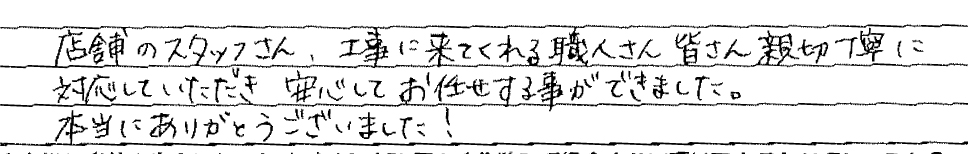 店舗のスタッフさん、工事に来てくれる職人さん皆さん親切丁寧に
対応していただき 安心して お任せする事ができました。
本当にありがとうございました!